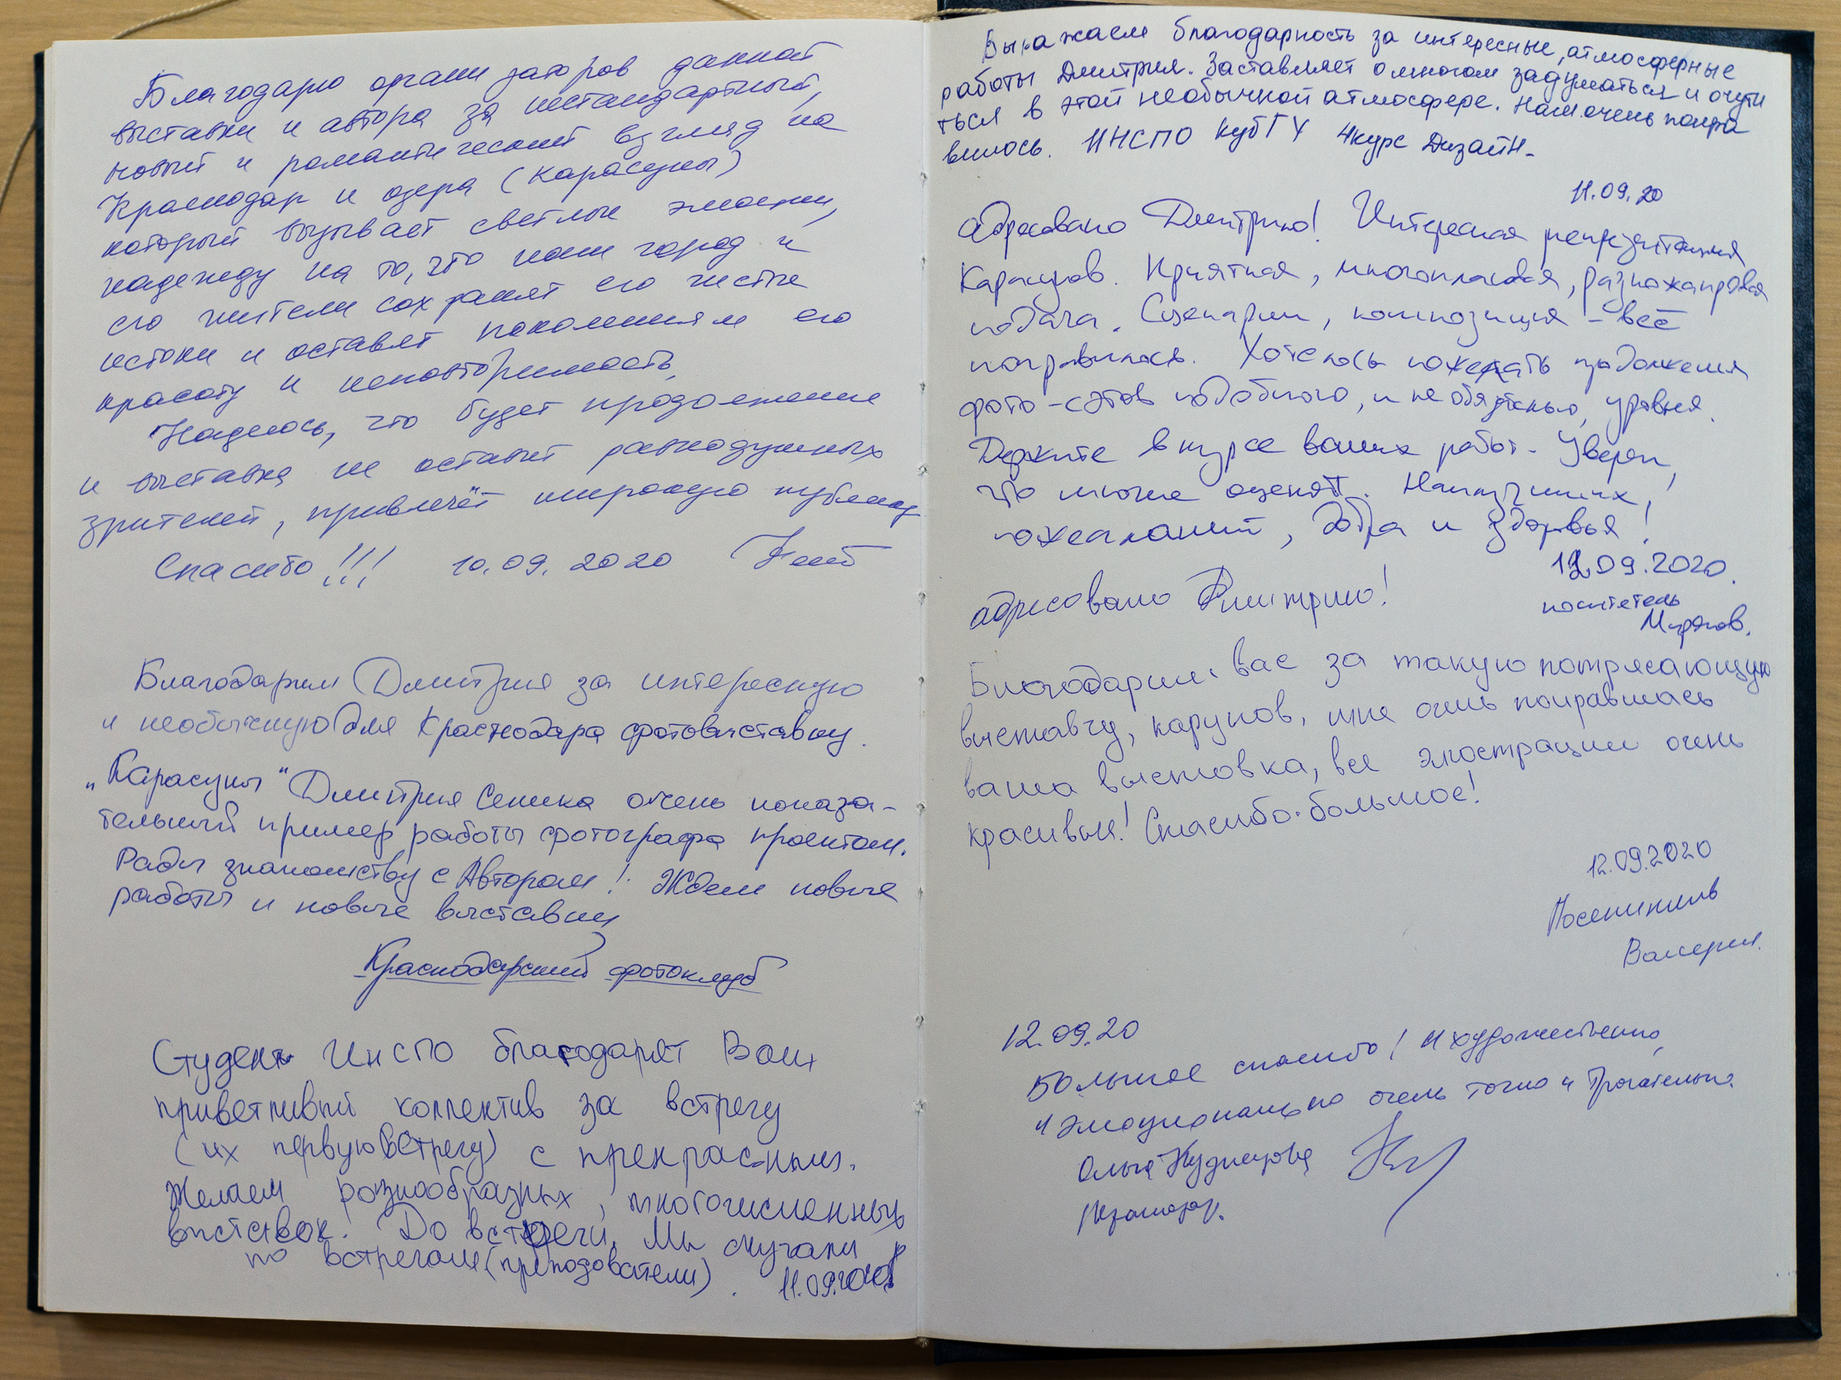 Благодарю организаторов данной
выставки и автора за нестандартный,
новый и романтический взгляд на
Краснодар и озера (Карасуны)
который вызывает светлые эмоции,
надежду на то, что наш город и
его жители сохранят его чистые
истоки и оставят поколениям его
красоту и неповторимость.
Надеюсь, что будет продолжение
и выставка не оставит равнодушных
зрителей, привлечёт широкую публику
Спасибо!!! 10.09.2020
Благодарим Дмитрия за интересную
и необычную для Краснодара фотовыставку.
"Карасуны" Дмитрия Сенина очень показа-
тельный пример работы фотографа проектом.
Рады знакомству с Автором! Ждем новые
работы и новые выставки
Краснодарский фотоклуб
Студенты ИНСПО благодарят Ваш
приветливый коллектив за встречу
(их первую встречу) с прекрасным.
Желаем разнообразных, многочисленных
выставок! До встречи. Мы скучали
по встречам (преподователи). 11.09.2020
Выражаем благодарность за интересные, атмосферные
работы Дмитрия. Заставляет о многом задуматься и очути
ться в этой необычной атмосфере. Нам очень понра
вилось. ИНСПО КубГУ 4 курс Дизайн.
11.09.20
Адресовано Дмитрию! Интересная репрезентация
Карасунов. Приятная, многоплановая, разножанровая
подача. Сценарии, композиция – всё
понравилось. Хотелось пожелать продолжения
фото-сэтов подобного, и не обязательно, уровня.
Держите в курсе ваших работ. Уверен,
что многие оценят. Наилучших
пожеланий, добра и здоровья!
12.09.2020.
посетитель
адресовано Дмитрию!
Благодарим вас за такую потрясающую
выставку, карунов, мне очень понравилась
ваша выставка, все илюстрации очень
красивые! Спасибо большое!
12.09.2020
Валерия.
12.09.20
Большое спасибо! И художественно,
и эмоционально очень точно и трогательно.
Ольга Кузнецова
Краснодар.